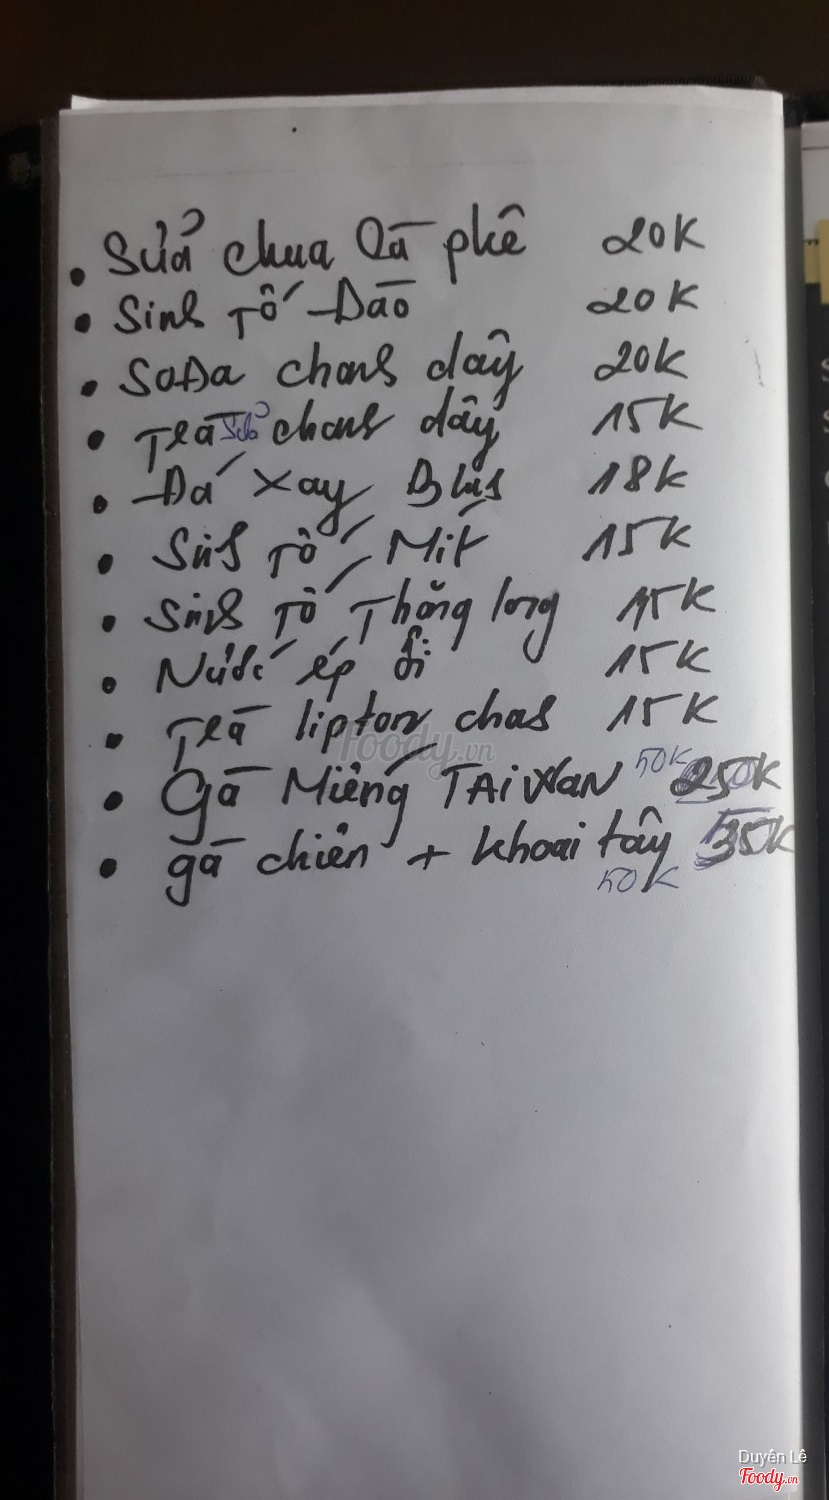 Sửa chua Cà phê 20K
Sinh Tố Đào 20K
SoĐa chanh dây 20K
Trà Sữa chanh dây 15K
Đá xay Blus 18K
Sinh Tố Mít 15K
Sinh Tố Thăng long 15K
Nước ép ổi 15K
Trà lipton chanh 15K
foody.vn
Gà Miếng TAiWaN 50K 25K
gà chiên + khoai tây 35K
50K
Duyên Lê
Foody.vn